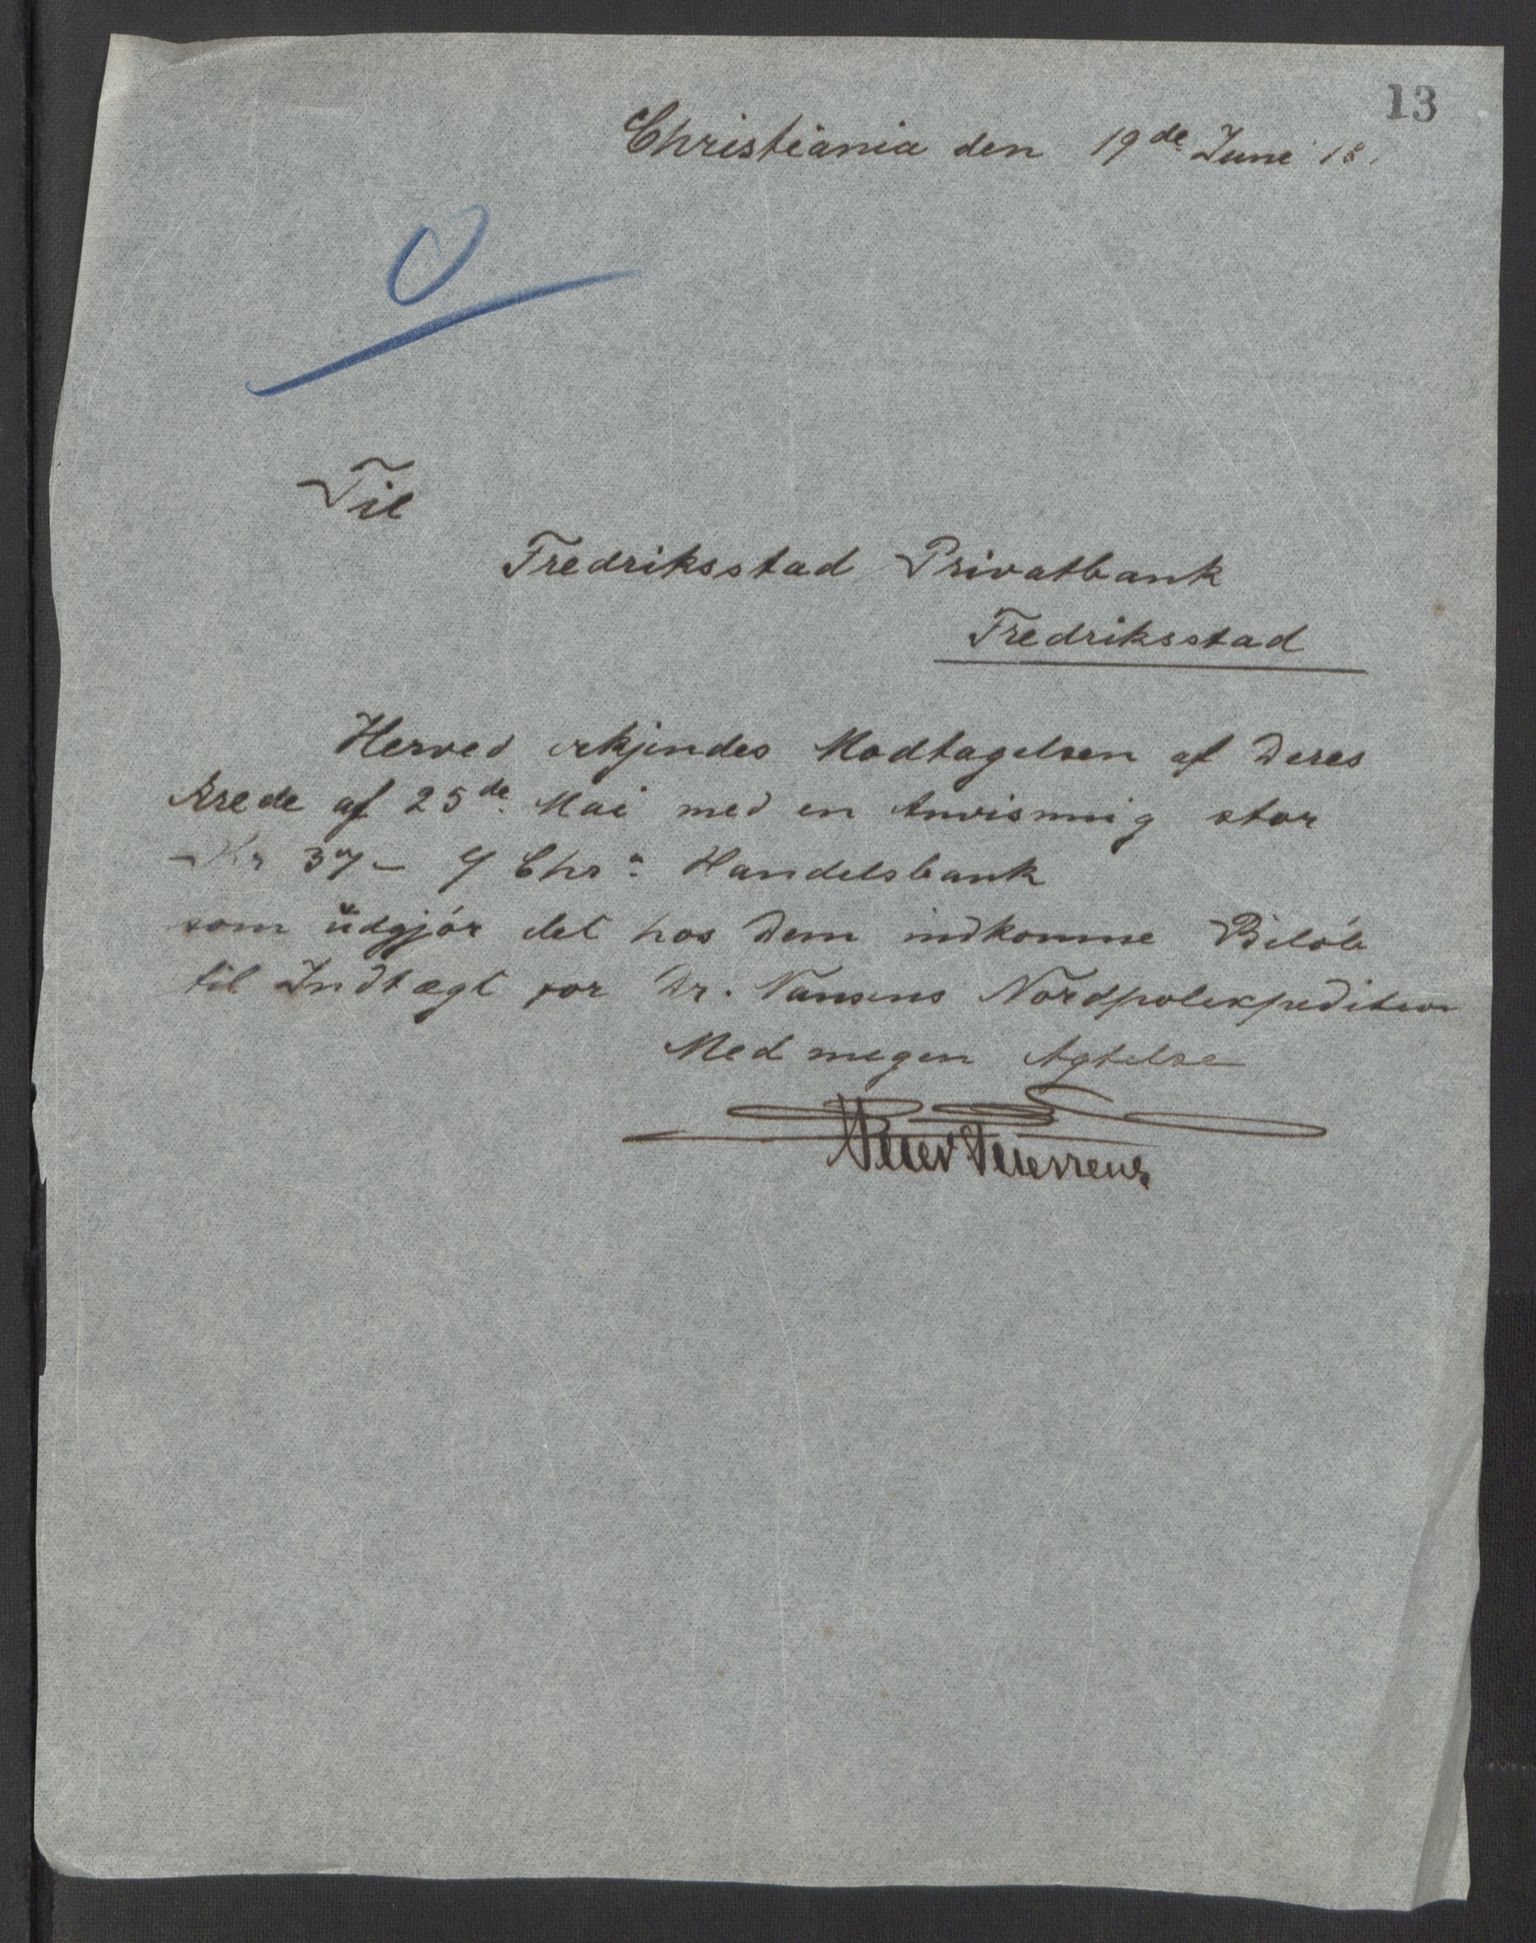 13
Christiania den 19de Juni 18
Til
Fredriksstad Privatbank
Fredriksstad
Herved erkjendes Modtagelsen af Deres
Ærede af 25de Mai med en Anvisning stor
Kr 37 – Chra Handelsbank
som üdgjør det hos Dem indkomne Beløb
til Indtægt for Dr. Nansens Nordpolexpedition
Med megen Agtelse